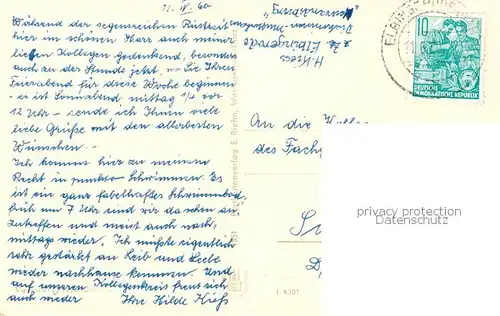 11. IV. 60
Während der segensreichen Rastzeit
hier im schönen Harz auch meiner
lieben Kollegen gedenkend, besonders
auch an der Stunde jetzt, wo Sie Ihren
Feierabend für diese Woche beginnen
- es ist Sonnabend mittag 1/4 vor
12 Uhr - sende ich Ihnen viele
liebe Grüße mit den allerbesten
Wünschen. -
Ich komme hier zu meinem
Recht in punkto Schwimmen. Es
ist ein ganz fabelhaftes Schwimmbad,
früh um 7 Uhr sind wir da schon an-
zutreffen und meist auch nach-
mittags wieder. Ich müßte eigentlich
sehr gestärkt an Leib und Seele
wieder nachhause kommen. Und
auf unseren Kollegenkreis freut sich
auch wieder Ihre Hilde Kieß
H. Kiess
z. Zt. Elbingerode
Diakonissen-Mutterhaus
Neuvandsburg
ELBINGERODE
10
DEUTSCHE
DEMOKRATISCHE REPUBLIK
An die
des Fache
privacy protection
Datenschutz
verlag E. Riehm
L 6301